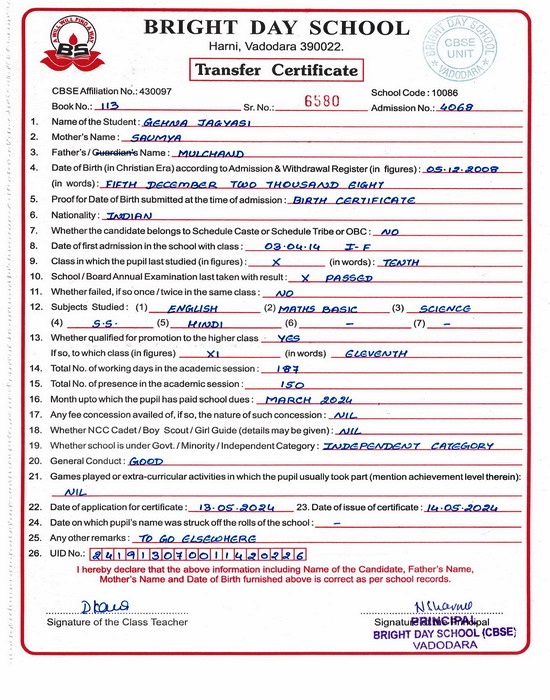 A WILL WILL FIND A WAY
BS
BRIGHT DAY SCHOOL
Harni, Vadodara 390022.
Transfer Certificate
BRIGHT DAY SCHOOL
CBSE
UNIT
VADODARA
CBSE Affiliation No.: 430097 School Code : 10086
Book No.: 113 Sr. No.: 6580 Admission No.: 4068
1. Name of the Student : GEHNA JAGYASI
2. Mother's Name : SAUMYA
3. Father's / Guardian's Name : MULCHAND
4. Date of Birth (in Christian Era) according to Admission & Withdrawal Register (in figures) : 05.12.2008
(in words) : FIFTH DECEMBER TWO THOUSAND EIGHT
5. Proof for Date of Birth submitted at the time of admission : BIRTH CERTIFICATE
6. Nationality : INDIAN
7. Whether the candidate belongs to Schedule Caste or Schedule Tribe or OBC : NO
8. Date of first admission in the school with class : 03.04.14 I-F
9. Class in which the pupil last studied (in figures) : X (in words) : TENTH
10. School / Board Annual Examination last taken with result : X PASSED
11. Whether failed, if so once / twice in the same class : NO
12. Subjects Studied : (1) ENGLISH (2) MATHS BASIC (3) SCIENCE
(4) S.S. (5) HINDI (6) - (7) -
13. Whether qualified for promotion to the higher class YES
If so, to which class (in figures) XI (in words) ELEVENTH
14. Total No. of working days in the academic session : 187
15. Total No. of presence in the academic session : 150
16. Month upto which the pupil has paid school dues : MARCH 2024
17. Any fee concession availed of, if so, the nature of such concession : NIL
18. Whether NCC Cadet / Boy Scout / Girl Guide (details may be given) : NIL
19. Whether school is under Govt. / Minority / Independent Category : INDEPENDENT CATEGORY
20. General Conduct : GOOD
21. Games played or extra-curricular activities in which the pupil usually took part (mention achievement level therein) :
NIL
22. Date of application for certificate : 13.05.2024 23. Date of issue of certificate : 14.05.2024
24. Date on which pupil's name was struck off the rolls of the school : -
25. Any other remarks : TO GO ELSEWHERE
26. UID No.: 241913070011420226
I hereby declare that the above information including Name of the Candidate, Father's Name,
Mother's Name and Date of Birth furnished above is correct as per school records.
Signature of the Class Teacher Signature of the Principal
PRINCIPAL
BRIGHT DAY SCHOOL (CBSE)
VADODARA